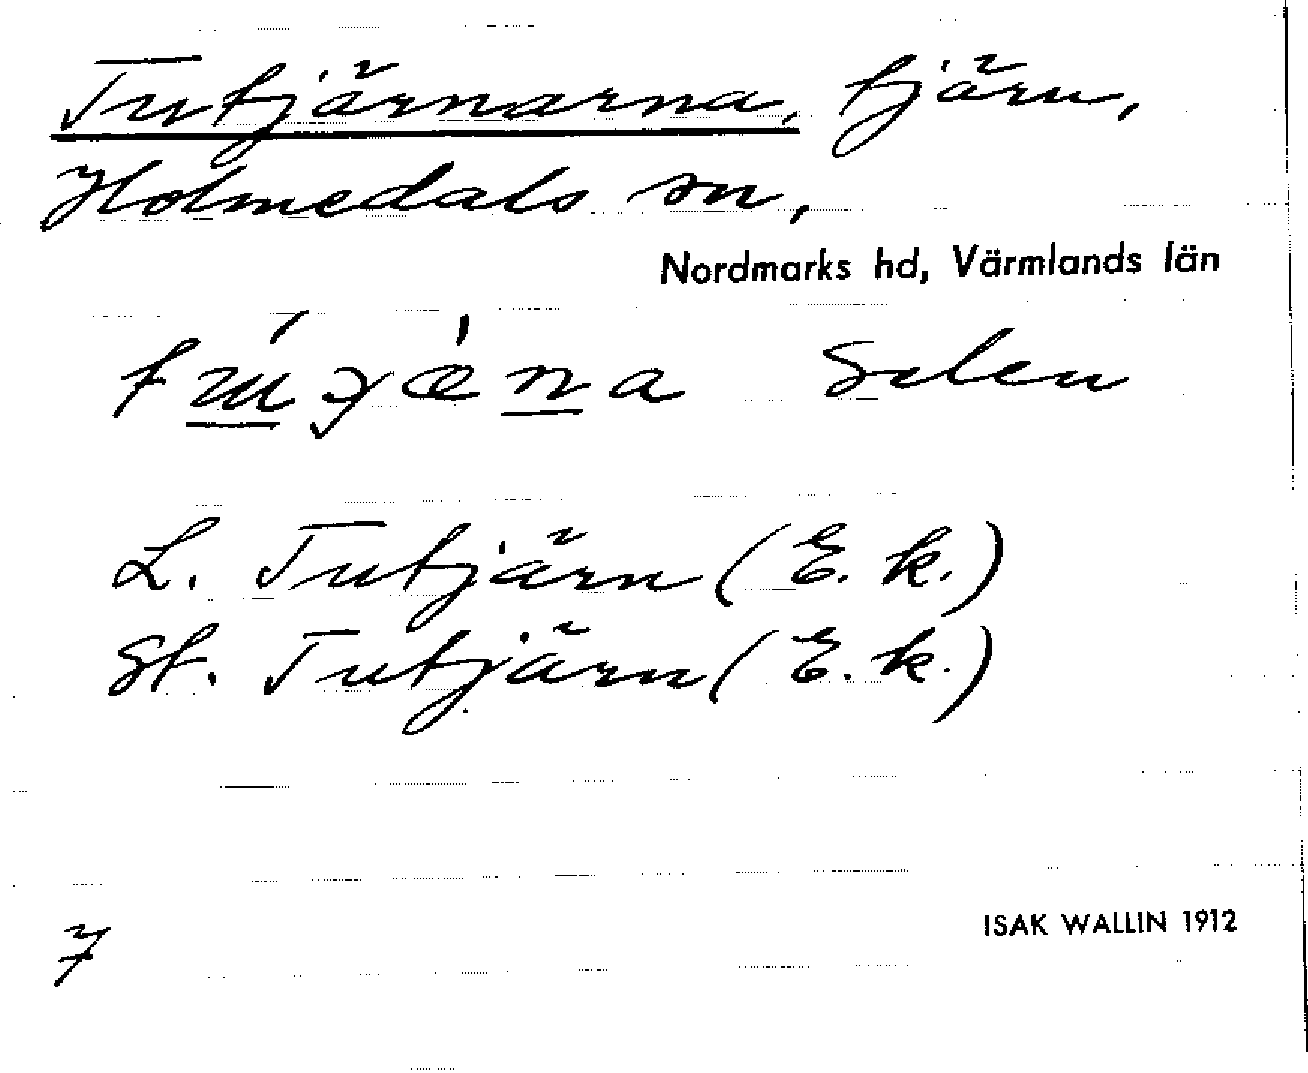 Tutjärnarna, tjärn,
Holmedals sn,
Nordmarks hd, Värmlands län
Selen
L. Tutjärn (E. k.)
St. Tutjärn (E. k.)
7
ISAK WALLIN 1912